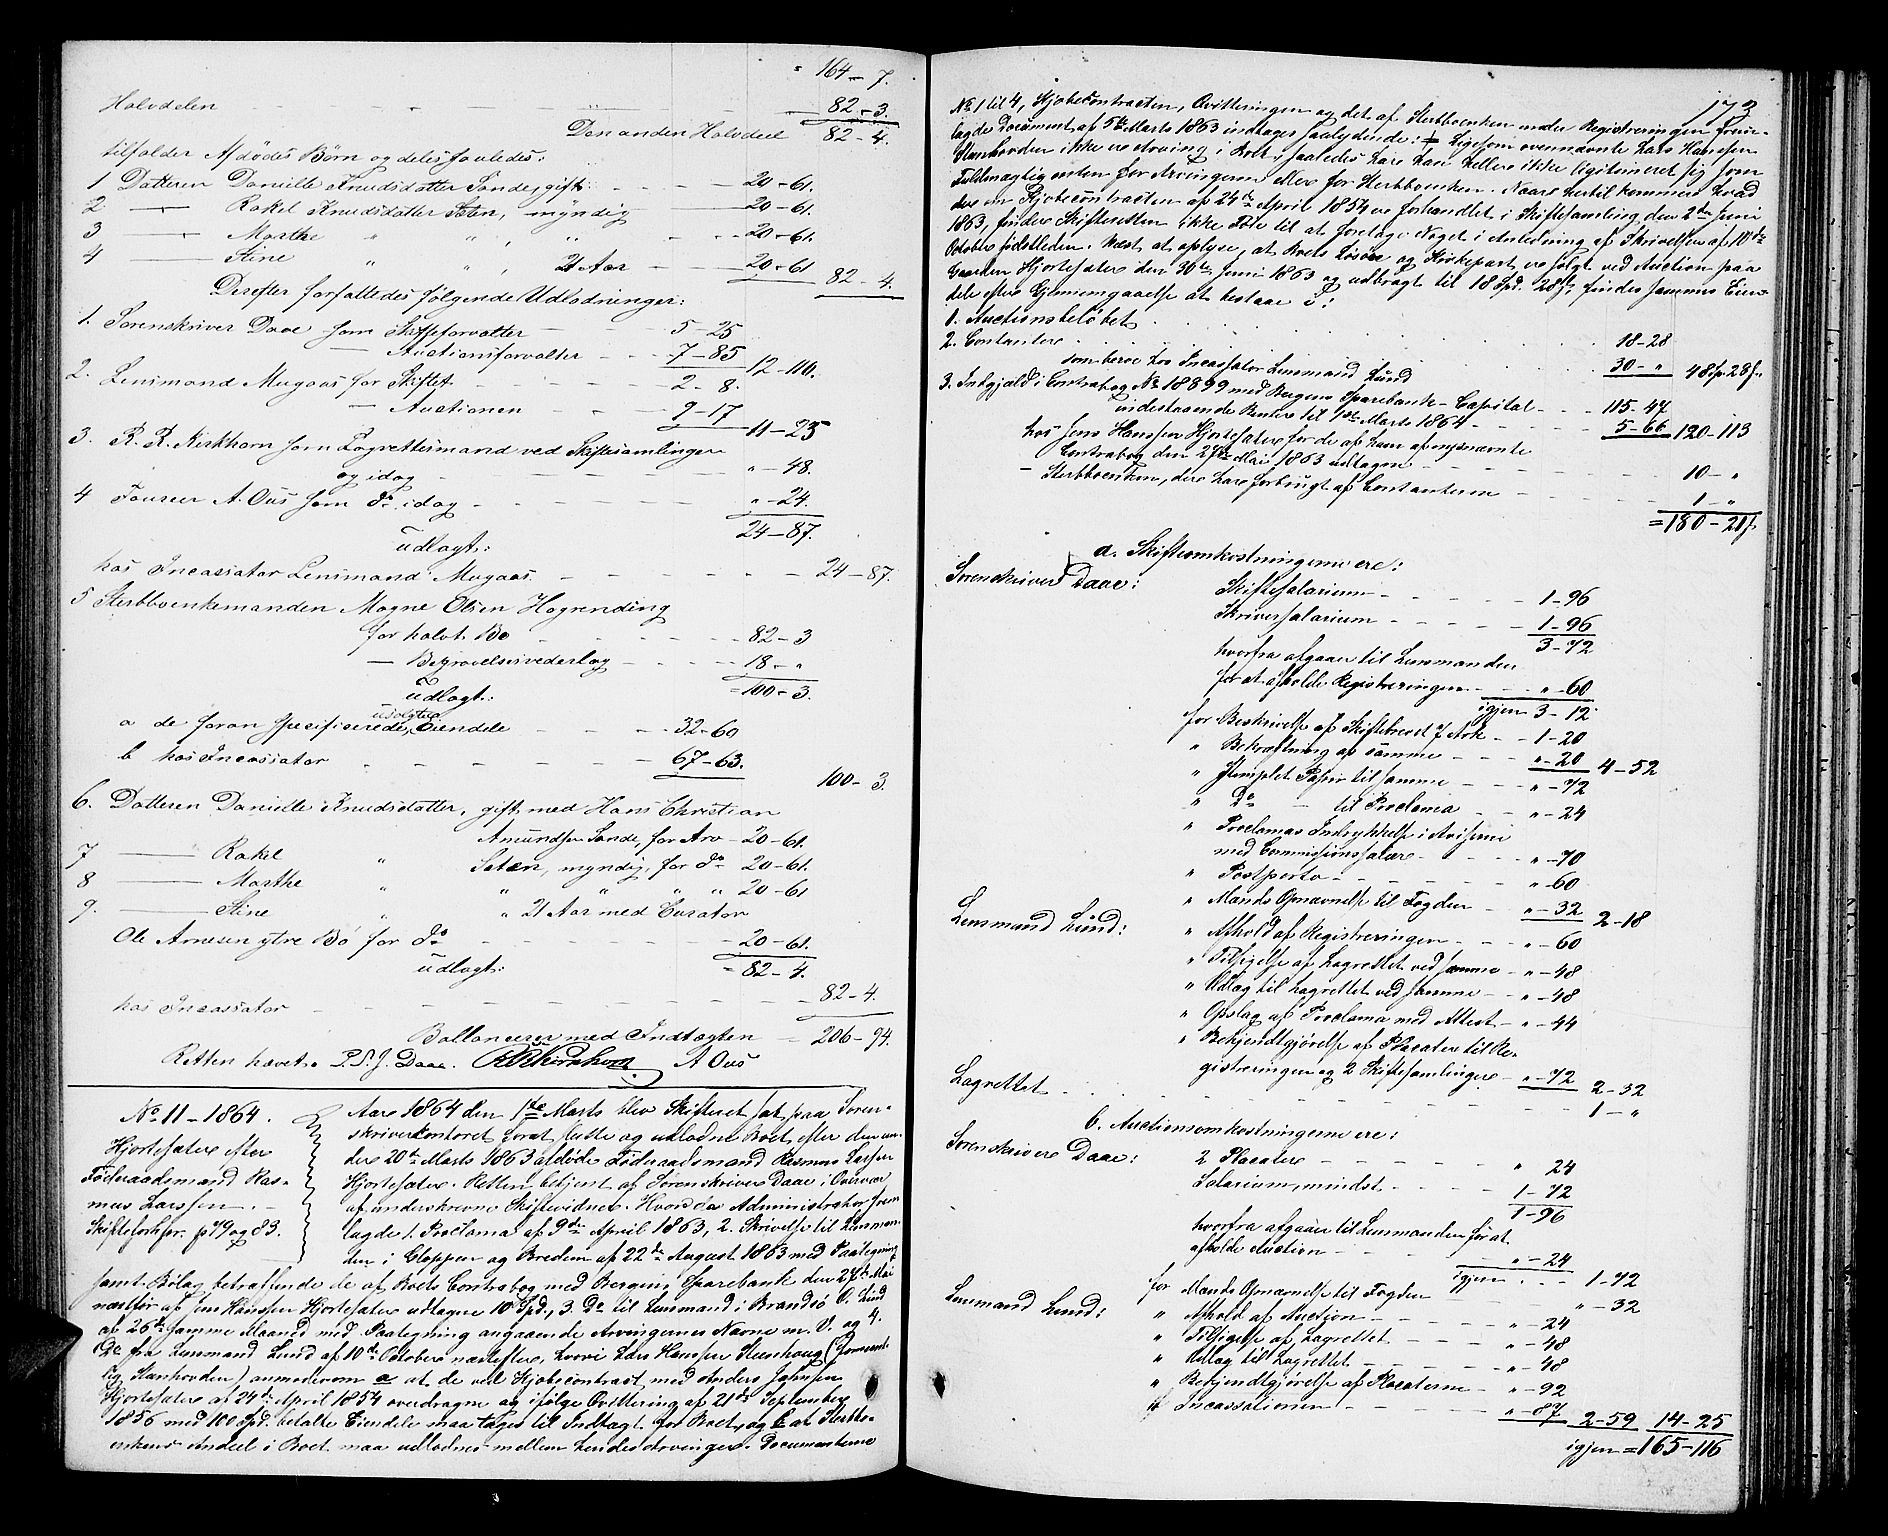 " 164 - 7.
Halvdelen - - - - " - - - 82 - 3.
Den anden Halvdeel 82 - 4.
tilfalder Afdødes Børn og deles saaledes:
1 Datteren Danielle Knudsdatter Sande, gift: - - - 20 - 61.
2 — Rakel Knudsdatter Seten, myndig - - - 20 - 61.
3 — Marthe " " , " - - - 20 - 61.
4 — Stine " " , 21 Aar - - - 20 - 61 82 - 4.
Derefter forfattedes følgende Udlodninger:
1. Sorenskriver Daae som Skifteforvalter - - 5 - 25
— Auctionsforvalter - - - 7 - 85 12 - 110.
2. Lensmand Mugaas for Skiftet - - - 2 - 8.
— Auctionen - - - 9 - 17 11 - 25
3. R. R. Kirkhorn som Lagrettesmand ved Skiftesamlingen
og idag - - - " - 48.
4 Foureer A. Ous som do idag - - - " - 24.
24 - 87.
udlagt:
hos Incassator Lensmand Mugaas. - - - - 24 - 87.
5 Sterbboenkemanden Mogne Olsen Hogrending
for halvt Bo - - - 82 - 3
— Begravelsesvederlag - - - 18 - "
= 100 - 3.
udlagt:
a de foran specificerede udlagte Eiendele - - - 32 - 60
b hos Incassator - - - - 67 - 63.
100 - 3.
6. Datteren Danielle Knudsdatter, gift med Hans Christian
Amundsen Sande, for Arv - 20 - 61.
7 — Rakel " Seten, myndig, for do 20 - 61.
8 — Marthe " " " " " 20 - 61
9. — Stine " " 21 Aar med Curator
Ole Arnesen ytre Bö for do - - - 20 - 61.
= 82 - 4.
udlagt:
hos Incassator - - - - 82 - 4.
Ballancerer med Indtægten - 206 - 94.
Retten hævet. P. S. J. Daae. RRKirkhorn A Ous
No 11 - 1864.
Hjortesæter efter
Föderaadsmand Ras-
mus Larssen. -
Skifteforhpr. p 79 og 83.
Aar 1864 den 1ste Marts blev Skifteret sat paa Soren-
skriverkontoret for at slutte og udlodne Boet efter den un-
der 20de Marts 1863 afdøde Föderaadsmand Rasmus Larssen
Hjortesæter. Retten betjent af Sorenskriver Daae i Overvær
af underskrevne Skiftevidner. Hvorda Administrator frem
lagde 1. Proclama af 9de April 1863, 2. Skrivelse til Lensman-
den i Gloppen og Bredem af 22de August 1863 med Paategning
samt Bilag betræffende de af Boets Contrabog med Bergens Sparebank den 27de Mai
næstfør af Jens Hanssen Hjortesæter udtagne 10 Spd., 3. Do til Lensmand i Brandsö O. Lund
af 26de samme Maaned med Paategning angaaende Arvingernes Navne m. V. og 4.
Do fra Lensmand Lund af 10de October næstefter, hvori Lars Hanssen
Stanhovden) anmoder om a at de ved Kjøbecontract med Anders Jahnsen
Hjortesæter af 24de April 1854 overdragne og ifølge Qvittering af 21de September
1856 med 100 Spd. betalte Eiendele maa tages til Indtægt for Boet, og b at Sterbbo-
enkens Andeel i Boet maa udlodnes mellem hendes Arvinger. Documenterne
173
No 1 til 4, Kjøbecontracten, Qvitteringen og det af Sterbboenken under Registreringen frem-
lagde Document af 5te Marts 1863 indtages saalydende: Ligesom ovennævnte Lars Hanssen
Stanhovden ikke er Arving i Boet, saaledes har han heller ikke legitimeret sig som
Fuldmægtig enten for Arvingerne eller for Sterbboenken. Naar hertil kommer hvad
der om Kjøbecontracten af 24de April 1854 er forhandlet i Skiftesamling den 2den Juni
1863, finder Skifteretten ikke Föie til at foretage Noget i Anledning af Skrivelsen af 10de
October sidstleden. Næst at oplyse, at Boets Løsøre og Kirkepart er solgt ved Auction paa
Gaarden Hjortesæter den 30te Juni 1863 og udbragt til 18 Spd. 28 s, findes sammes Eien-
dele efter Gjennemgaaelse at bestaae i:
1. Auctionsbeløbet . . . . . 18 - 28
2. Contanter . . . . . 30 - " 48 sp. 28 s.
som beroe hos Incassator Lensmand Lund
3. Indgjæld i Contrabog No 18899 med Bergens Sparebank - Capital - - - 115 - 47
indestaaende Renter til 1ste Marts 1864 - - - - 5 - 66 120 - 113
hos Jens Hanssen Hjortesæter for de af ham af nysnævnte
Contrabog den 27de Mai 1863 udtagne - - - 10 - "
- Sterbboenken, der har forbrugt af Contanterne - - - 1 - "
= 180 - 21 s.
a. Skifteomkostningerne ere:
Sorenskriver Daae: Skiftesalarium - - - 1 - 96
Skriversalarium - - - 1 - 96
3 - 72
hvorfra afgaaer til Lensmanden
for at afholde Registreringen - - - " - 60
igjen 3 - 12
for Beskrivelse af Skiftebrevet 7 Ark - - 1 - 20
" Bekræftning af samme - - - " - 20 4 - 52
" Stemplet Papir til samme - - - " - 72
" Do — til Proclama - - " - 24
" Proclamas Indrykkelse i Aviserne
med Commissionssalær - - - " - 70
" Postporto - - - - " - 60
" Mands Opnævnelse til Fogden - - " - 32 2 - 18
Lensmand Lund: " Afhold af Registreringen - - - " - 60
" Tilsigelse af Lagrettet ved samme - " - 48
" Udlæg til Lagrettet ved samme - - " - 48
" Opslag af Proclama med Attest - " - 44
" Bekjendtgjørelse af Placater til Re-
gistreringen og 2 Skiftesamlinger - " - 72 2 - 32
Lagrettet . - - - - 1 - "
b. Auctionsomkostningerne ere:
Sorenskriver Daae: 2 Placater - - - - " 24
Salarium, mindst - - - 1 - 72
1 - 96
hvorfra afgaaer til Lensmanden for at
afholde Auction - - - " - 24
igjen . - - 1 - 72
for Mands Opnævnelse til Fogden " - 32
Lensmand Lund: " Afhold af Auction - - - " - 24
" Tilsigelse af Lagrettet - - - " - 48
" Udlæg til Lagrettet - - - " - 48
" Bekjendtgjørelse af Placaterne - - " - 92
" Incassationen - - - - " - 87 2 - 59 14 - 25
igjen = 165 - 116